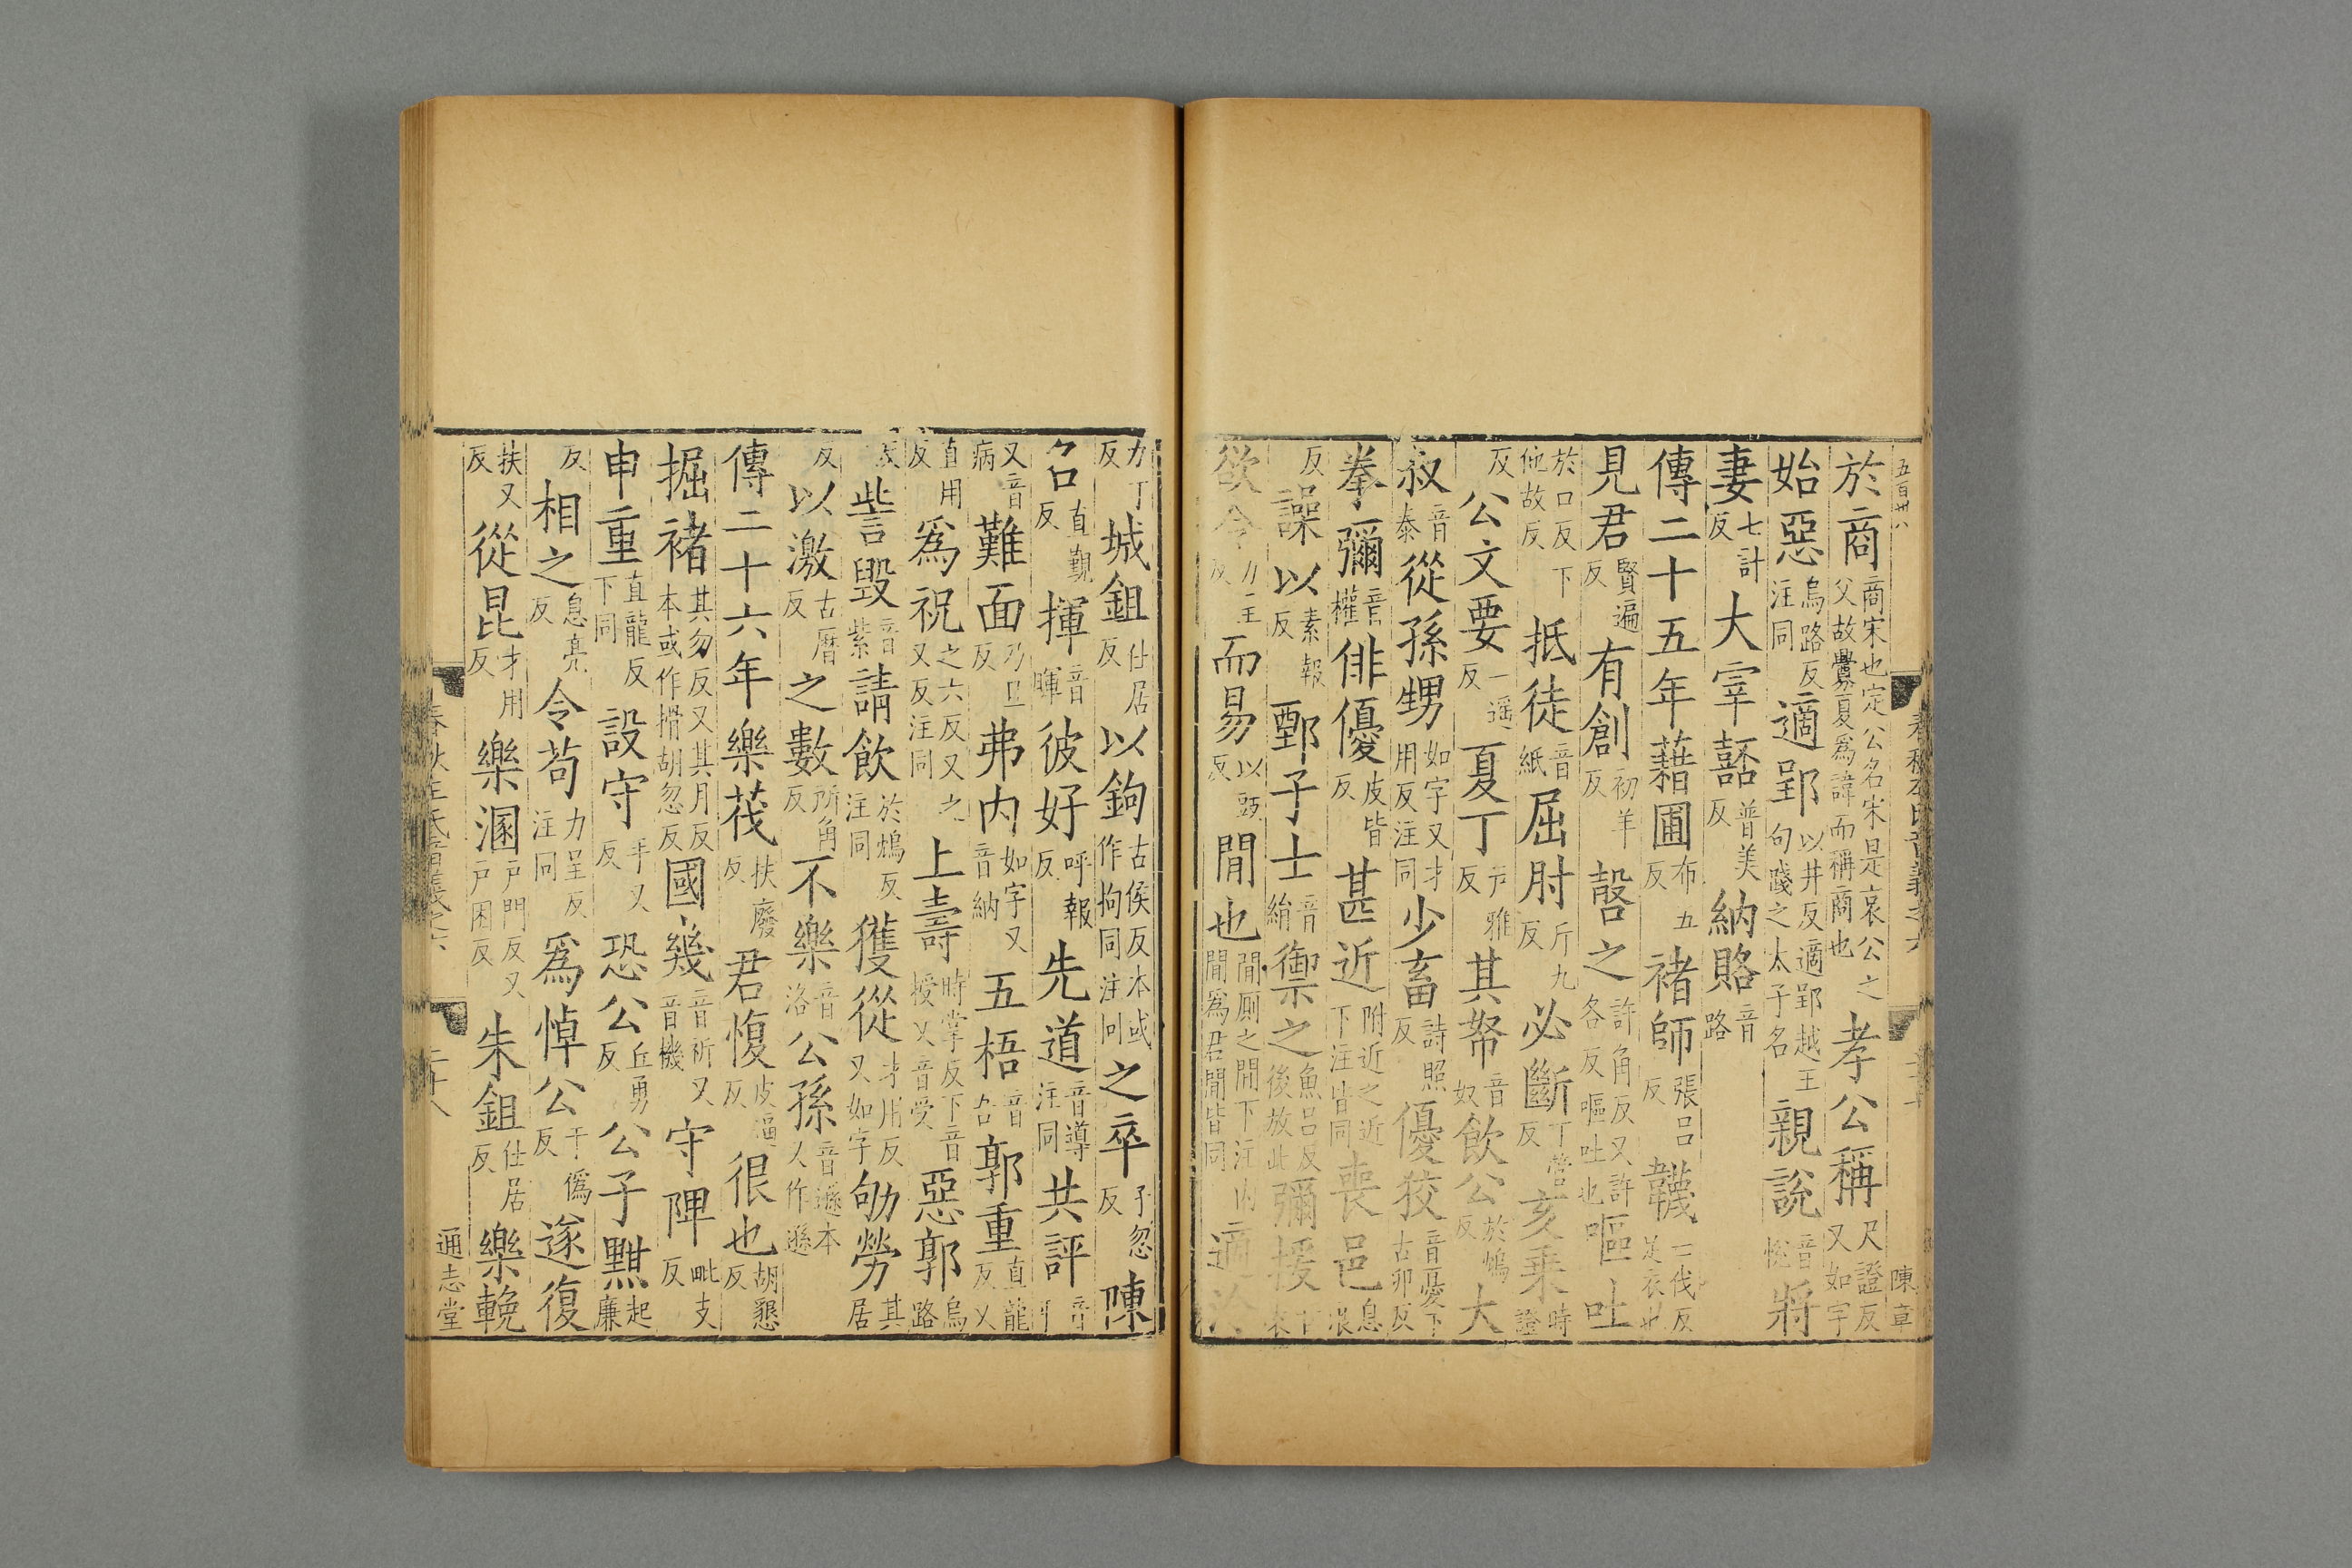 五百卅八
於商商宋也定公名宋是哀公之父故釁夏爲諱而稱商也孝公稱尺證反又如字
始惡烏路反注同適郢以井反適郢越王句踐之太子名親說音悅將
妻七計反大宰嚭普美反納賂音路
傳二十五年藉圃布五反褚師張呂反韤亡伐反足衣也
見君賢遍反有創初羊反嗀之許角反又許各反嘔吐也嘔吐
於口反下他故反抵徒音紙屈肘斤九反必斷丁管反亥乗時證
反公文要一遥反夏丁戸雅反其帑音奴飲公於鴆反大
叔音泰從孫甥如字又才用反注同少畜詩照反優狡音憂下古卯反
拳彌音權俳優皮皆反甚近附近之近下注皆同喪邑息浪
反譟以素報反鄄子士音絹禦之魚呂反後放此彌援
欲令力呈反而易以豉反閒也閒厠之閒下注內閒爲君閒皆同適
陳章
力丁反城鉏仕居反以鉤古侯反本或作拘同注同之卒子忽反陳
名直覲反揮音暉彼好呼報反先道音導注同共評音
又音病難面乃旦反弗内如字又音納五梧音吾郭重直龍反又
直用反爲祝之六反又之又反注同上壽時掌反下音授又音受惡郭烏路
反訾毀音紫請飲於鴆反注同獲從才用反又如字劬勞其居
反以激古厯反之數所角反不樂音洛公孫音遜本又作遜
傳二十六年樂茷扶廢反君愎皮逼反很也胡懇反
掘褚其勿反又其月反本或作搰胡忽反國幾音祈又音機守陴毗支反
申重直龍反下同設守手又反恐公丘勇反公子黚起廉
反相之息亮反令苟力呈反注同爲悼公于僞反遂復
扶又反從昆才用反樂溷戸門反又戸困反朱鉏仕居反樂輓
春秋左氏音義之六
二十八
通志堂